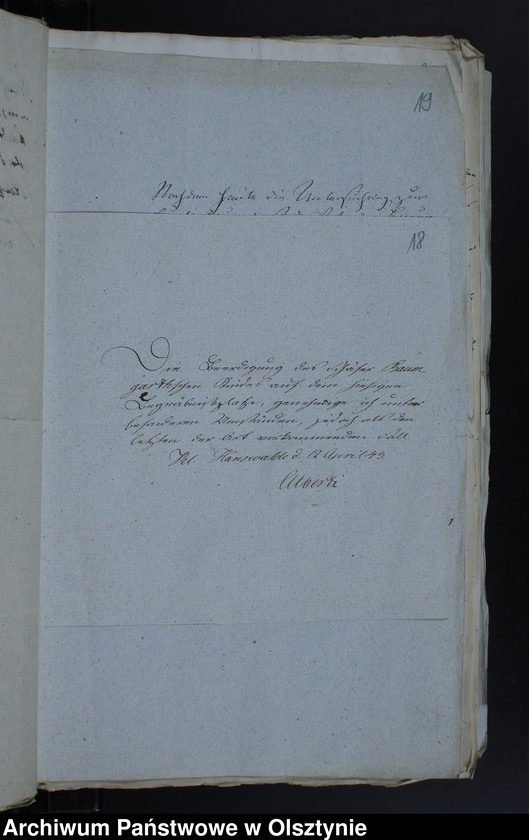 19
Nachdem heute die Untersuchung zur
18
Die Beerdigung des Schäfer Baum
garthschen Kindes auf dem hiesigen
Begräbnißplatze, genehmige ich unter
besonderen Umständen, jedoch als den
letzten der Art vorkommenden Fall.
Kl. Hanswalde d. 12 April 43.
Alberti
Archiwum Państwowe w Olsztynie